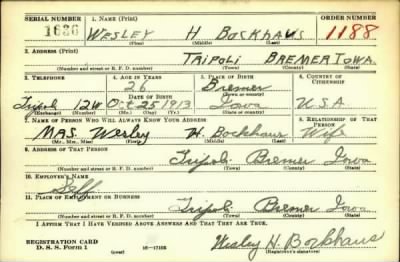 SERIAL NUMBER 1. Name (Print) ORDER NUMBER
1626 WESLEY H BOCKHAUS 1188
(First) (Middle) (Last)
2. Address (Print)
TRIPOLI BREMER IOWA.
(Number and street or R. F. D. number) (Town) (County) (State)
3. Telephone 4. Age in Years 5. Place of Birth 6. Country of Citizenship
26 Bremer
Date of Birth (Town or county)
Tripoli 12W Oct 25 1913 Iowa U.S.A
(Exchange) (Number) (Mo.) (Day) (Yr.) (State or country)
7. Name of Person Who Will Always Know Your Address 8. Relationship of That Person
MRS. Wesley H. Bockhaus Wife
(Mr., Mrs., Miss) (First) (Middle) (Last)
9. Address of That Person
Tripoli Bremer Iowa
(Number and street or R. F. D. number) (Town) (County) (State)
10. Employer's Name
Self
11. Place of Employment or Business
Tripoli Bremer Iowa
(Number and street or R. F. D. number) (Town) (County) (State)
I Affirm That I Have Verified Above Answers and That They Are True.
Registration Card
D. S. S. Form 1 (over) 16-17105 Wesley H. Bockhaus
(Registrant's signature)